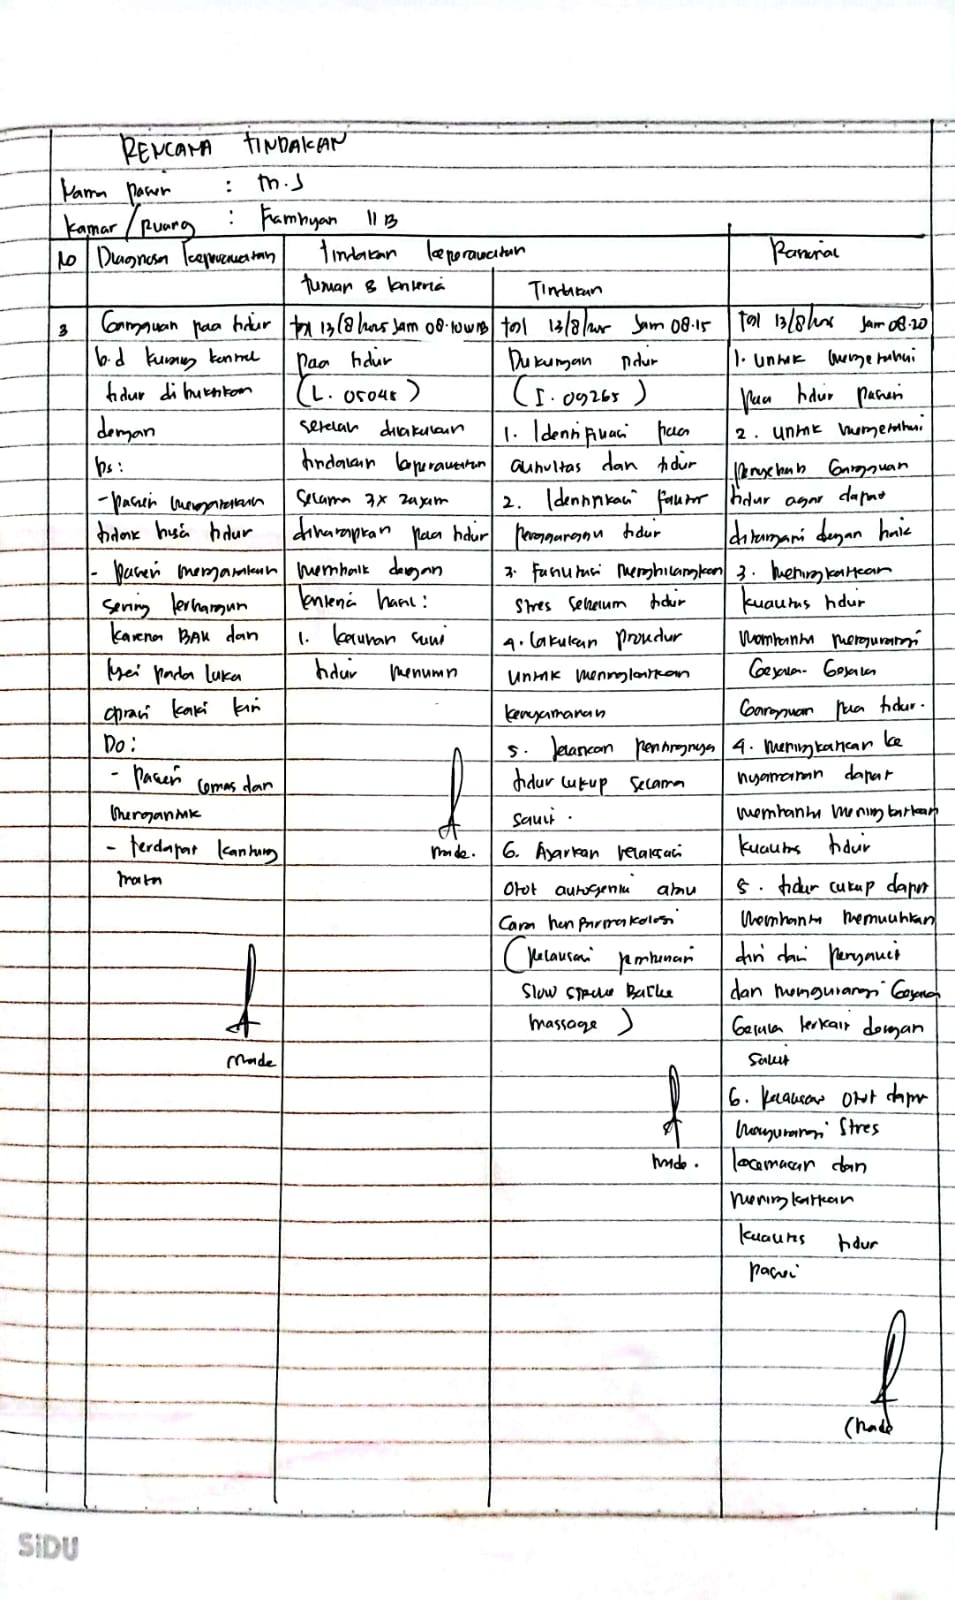 RENCANA TINDAKAN
Nama pasien : Tn. S
Kamar / Ruang : II B
No Diagnosa keperawatan
Tindakan keperawatan
Rasional
Tujuan & kriteria
Tindakan
3
Gangguan pola tidur
b.d kurang kontrol
tidur dibuktikan
dengan
Ds:
- pasien mengatakan
tidak bisa tidur
- pasien mengatakan
sering terbangun
karena BAK dan
nyeri pada luka
oprasi kaki kiri
Do:
- pasien lemas dan
mengantuk
- terdapat kantung
mata
Made
tgl 13/8/ Jam 08.10 WIB
pola tidur
(L. 05045)
setelah dilakukan
tindakan keperawatan
selama 3x
diharapkan pola tidur
membaik dengan
kriteria hasil:
1. keluhan sulit
tidur menurun
Made.
tgl 13/8/ Jam 08.15
Dukungan tidur
(I. 09265)
1. Identifikasi pola
aktivitas dan tidur
2. Identifikasi faktor
pengganggu tidur
3. Fasilitasi menghilangkan
stres sebelum tidur
4. Lakukan prosedur
untuk meningkatkan
kenyamanan
5. Jelaskan pentingnya
tidur cukup selama
sakit.
6. Ajarkan relaksasi
otot autogenik atau
cara non farmakologi
(Relaksasi pemberian
slow stroke Backe
massage)
Made.
tgl 13/8/ Jam 08.20
1. untuk mengetahui
pola tidur pasien
2. untuk mengetahui
penyebab Gangguan
tidur agar dapat
ditangani dengan baik
3. meningkatkan
kualitas tidur
membantu mengurangi
Gejala-Gejala
Gangguan pola tidur.
4. meningkatkan ke
nyamanan dapat
membantu meningkatkan
kualitas tidur
5. tidur cukup dapat
membantu memulihkan
diri dari penyakit
dan mengurangi Gejala
Gejala terkait dengan
sakit
6. Relaksasi otot dapat
mengurangi stres
kecemasan dan
meningkatkan
kualitas tidur
pasien
Made
SiDU